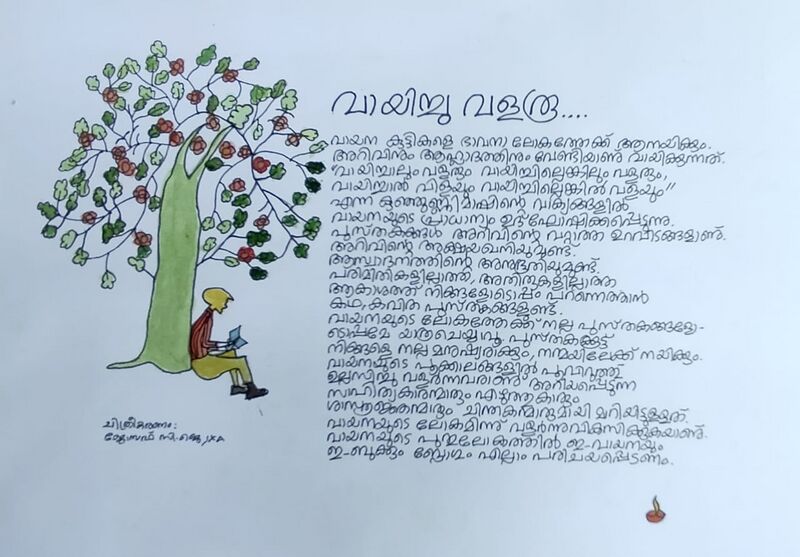 വായിച്ചു വളരൂ....
വായന കുട്ടികളെ ഭാവനാ ലോകത്തേക്ക് ആനയിക്കും.
അറിവിനും ആഹ്ലാദത്തിനും വേണ്ടിയാണ് വായിക്കുന്നത്.
"വായിച്ചാലും വളരും വായിച്ചില്ലെങ്കിലും വളരും,
വായിച്ചാൽ വിളയും വായിച്ചില്ലെങ്കിൽ വളയും"
എന്ന കുഞ്ഞുണ്ണിമാഷിന്റെ വാക്യങ്ങളിൽ
വായനയുടെ പ്രാധാന്യം ഉദ്ഘോഷിക്കപ്പെടുന്നു.
പുസ്തകങ്ങൾ അറിവിന്റെ വറ്റാത്ത ഉറവിടങ്ങളാണ്.
അറിവിന്റെ അക്ഷയഖനിയുമുണ്ട്.
ആസ്വാദനത്തിന്റെ അനുഭൂതിയുമുണ്ട്.
പരിമിതികളില്ലാത്ത, അതിരുകളില്ലാത്ത
ആകാശത്ത് നിങ്ങളോടൊപ്പം പറന്നെത്താൻ
കഥ, കവിത പുസ്തകങ്ങളുണ്ട്.
വായനയുടെ ലോകത്തേക്ക് നല്ല പുസ്തകങ്ങളോ-
ടൊപ്പമേ യാത്രചെയ്യാവൂ. പുസ്തകങ്ങൾ
നിങ്ങളെ നല്ല മനുഷ്യരാക്കും, നന്മയിലേക്ക് നയിക്കും.
വായനയുടെ പൂക്കാലങ്ങളിൽ പൂവിറുത്ത്
ഉല്ലസിച്ചു വളർന്നവരാണ് അറിയപ്പെടുന്ന
സാഹിത്യകാരന്മാരും എഴുത്തുകാരും
ശാസ്ത്രജ്ഞന്മാരും ചിന്തകന്മാരുമായി മാറിയിട്ടുള്ളത്.
വായനയുടെ ലോകമിന്ന് വളർന്നുവികസിക്കുകയാണ്.
വായനയുടെ പുതുലോകത്തിൽ ഇ-വായനയും
ഇ-ബുക്കും ബ്ലോഗും എല്ലാം പരിചയപ്പെടണം.
ചിത്രീകരണം:
ജോസഫ് സി.ജെ, IXA